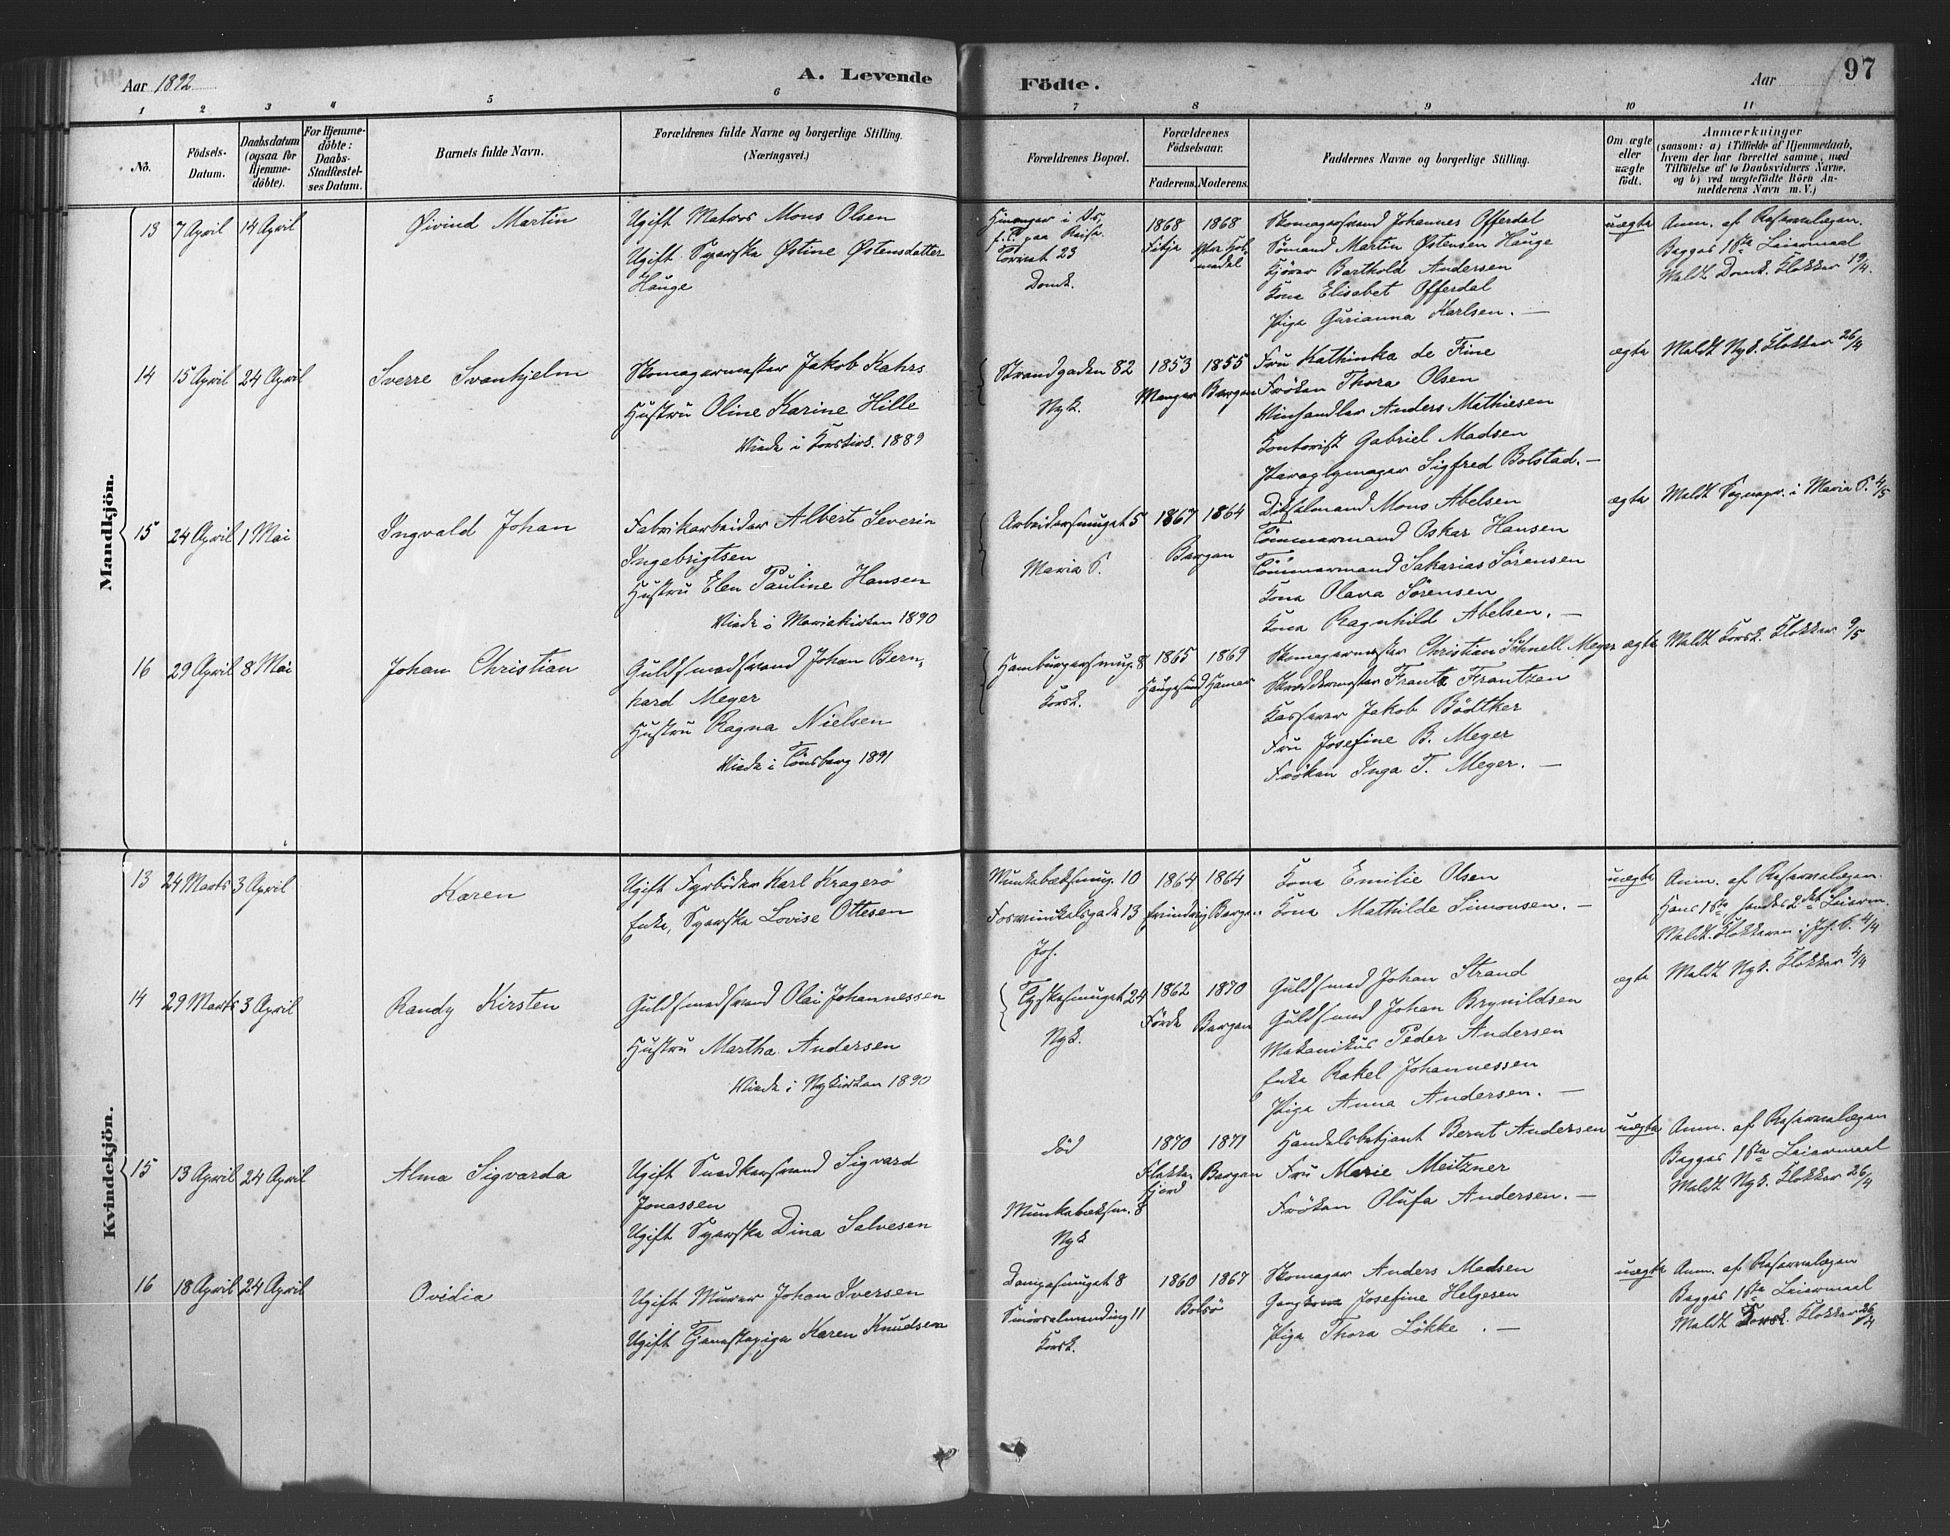 Aar 1892
A. Levende
Födte.
Aar
97
1 2 3 4 5 6 7 8 9 10 11
No.
Födsels-Datum.
Daabsdatum (ogsaa for Hjemme-döbte).
For Hjemme-döbte: Daabs-Stadfæstel-ses Datum.
Barnets fulde Navn.
Forældrenes fulde Navne og borgerlige Stilling. (Næringsvei.)
Forældrenes Bopæl.
Forældrenes Födselsaar.
Faderens. Moderens.
Faddernes Navne og borgerlige Stilling.
Om ægte eller uægte födt.
Anmærkninger
(saasom: a) i Tilfælde af Hjemmedaab, hvem der har forrettet samme, med Tilföielse af to Daabsvidners Navne, og b) ved uægtefödte Börn An-melderens Navn m. V.)
Mandkjön.
13 7 April 14 April
Øivind Martin
Ugift Matros Mons Olsen
Ugift Syerske Østine Østensdatter
Hauge
Torvet 23
Domk.
1868 1868
Skomagersvend Johannes Offerdal
Sømand Martin Østensen Hauge
Kjører Barthold Andersen
Kone Elisabet Offerdal
Pige Gurianna Karlsen. —
uægte
Anm. af Reserselægen.
Begges 1ste Leiermaal
Meldt Domk. Klokker 19/4.
14 15 April 24 April
Sverre Svanhjelm
Skomagermester Jakob Kahrs
Hustru Oline Karine Hille
Viede i Korskirk. 1889
Strandgaden 82
Nyk.
1853 1855
Manger Bergen
Fru Kathinka de Fine
Frøken Thora Olsen
Vinhandler Anders Mathiesen
Kontorist Gabriel Madsen
Paraplymager Sigfred Bolstad. —
ægte
Meldt Nyk. Klokker 26/4
15 24 April 1 Mai
Ingvald Johan
Fabrikarbeider Albert Severin
Ingebrigtsen
Hustru Elen Pauline Hansen
Viede i Mariakirken 1890
Arbeidersmuget 5
Maria S.
1867 1864
Bergen
Dikselmand Mons Abelsen
Tömmermand Oskar Hansen
Tömmermand Sakarias Sørensen
Kone Olava Sørensen
Kone Ragnhild Abelsen. —
ægte
Meldt Sognepr. i Maria S. 4/5
16 29 April 8 Mai
Johan Christian
Guldsmedsvend Johan Bern-
hard Meyer
Hustru Ragna Nielsen
Viede i Tönsberg 1891
Hamburgersmug. 8
Korsk.
1865 1869
Haugesund Hamar
Skomagermester Christian Schnell Meyer
Skræddermester Frantz Frantzen
Kasserer Jakob Bödtker
Fru Josefine B. Meyer
Frøken Inga T. Meyer. —
ægte
Meldt Korsk. Klokker 9/5
Kvindekjön.
13 24 Marts 3 April
Karen
Ugift Fyrböder Karl Kragerö
Enke, Syerske Lovise Ottesen
Munkebæksmug. 10
Fosswinkelsgade 13
Joh.
1864 1864
Evindvig Bergen
Kone Emilie Olsen
Kone Mathilde Simonsen. —
uægte
Anm. af Reserselægen.
Hans 1ste hendes 2det Leierm.
Meldt Klokkeren i Joh. S. 4/4
14 29 Marts 3 April
Randy Kirsten
Guldsmedsvend Olai Johannessen
Hustru Martha Andersen
Viede i Nykirken 1890
Tydskesmuget 24
Nyk.
1862 1870
Førde Bergen
Guldsmed Johan Strand
Guldsmed Johan Brynildsen
Mekanikus Peder Andersen
Enke Rakel Johannessen
Pige Anna Andersen. —
ægte
Meldt Nyk. Klokker 4/4
15 13 April 24 April
Alma Sigvarda
Ugift Snedkersvend Sigvard
Jonassen
Ugift Syerske Dina Salvesen
død
Munkebæksm. 8
Nyk
1870 1871
Flekke-
fjord Bergen
Handelsbetjent Bernt Andersen
Fru Marie Meitzner
Frøken Olufa Andersen. —
uægte
Anm. af Reserselægen
Begges 1ste Leiermaal
Meldt Nyk. Klokker 26/4
16 18 April 24 April
Ovidia
Ugift Murer Johan Iversen
Ugift Tjenestepige Karen Knudsen
Dampesmuget 8
Smörsalmending 11
Korsk.
1860 1867
Bolsö
Skomager Anders Madsen
Gangkone Josefine Helgesen
Pige Thora Løkke. —
uægte
Anm. af Reserselægen
Begges 1ste Leiermaal
Meldt Korsk. Klokker 26/4